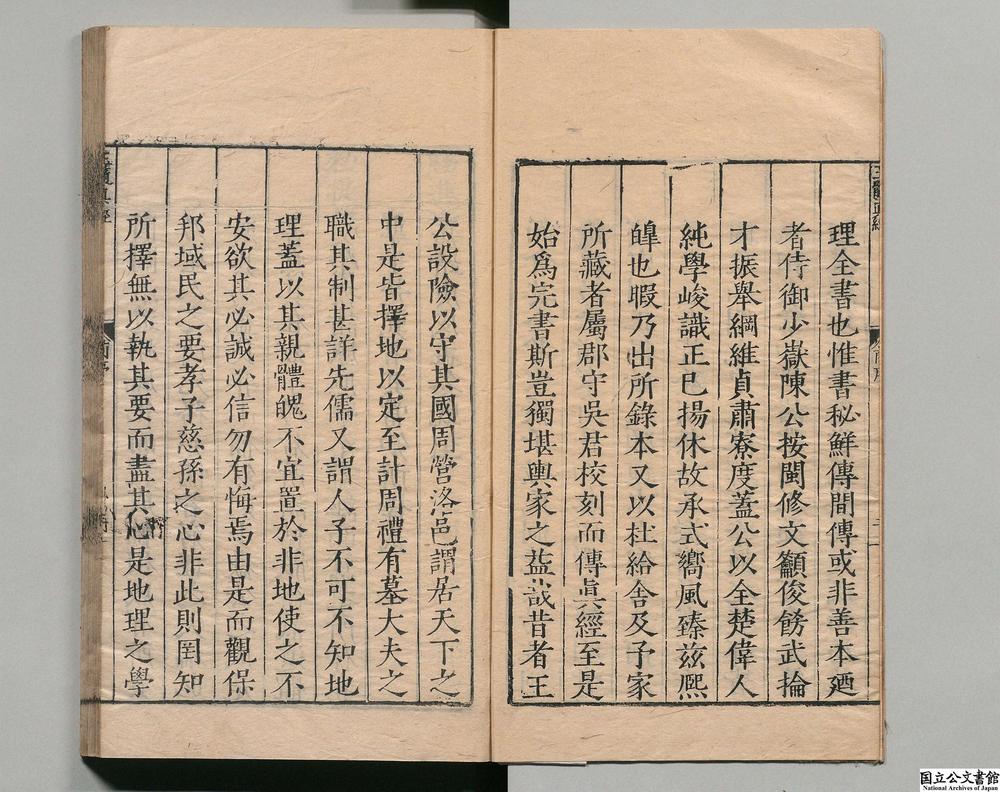 理全書也惟書秘鮮傳間傳或非善本廼
者侍御少嶽陳公按閩修文籲俊餝武掄
才振舉綱維貞肅寮度蓋公以全楚偉人
純學峻識正己揚休故承式嚮風臻茲熈
皥也暇乃出所錄本又以杜給舎及予家
所藏者屬郡守吳君校刻而傳眞經至是
始爲完書斯豈獨堪輿家之益哉昔者王
公設險以守其國周營洛邑謂居天下之
中是皆擇地以定至計周禮有墓大夫之
職其制甚詳先儒又謂人子不可不知地
理蓋以其親體魄不宜置於非地使之不
安欲其必誠必信勿有悔焉由是而觀保
邦域民之要孝子慈孫之心非此則罔知
所擇無以執其要而盡其心是地理之學
国立公文書館
National Archives of Japan